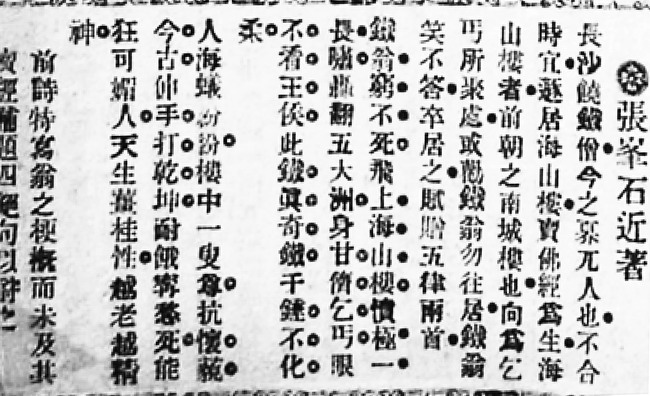 張峯石近著
長沙饒鐵僧今之兀人也不合
時宜遯居海山樓賣佛經爲生海
山樓者前朝之南城樓也向爲乞
丐所聚處或勸鐵翁勿往居鐵翁
笑不答卒居之賦贈五律兩首
鐵翁窮不死飛上海山樓憤極一
長嘯翻五大洲身甘儕乞丐眼
不看王侯此鐵眞奇鐵千錘不化
柔
人海蟻紛紛樓中一叟尊抗懷藐
今古伸手打乾坤耐餓寧愁死能
狂可媚人天生薑桂性越老越精
神
前詩特寫翁之梗概而未及其
賣經補題四絕句以附之